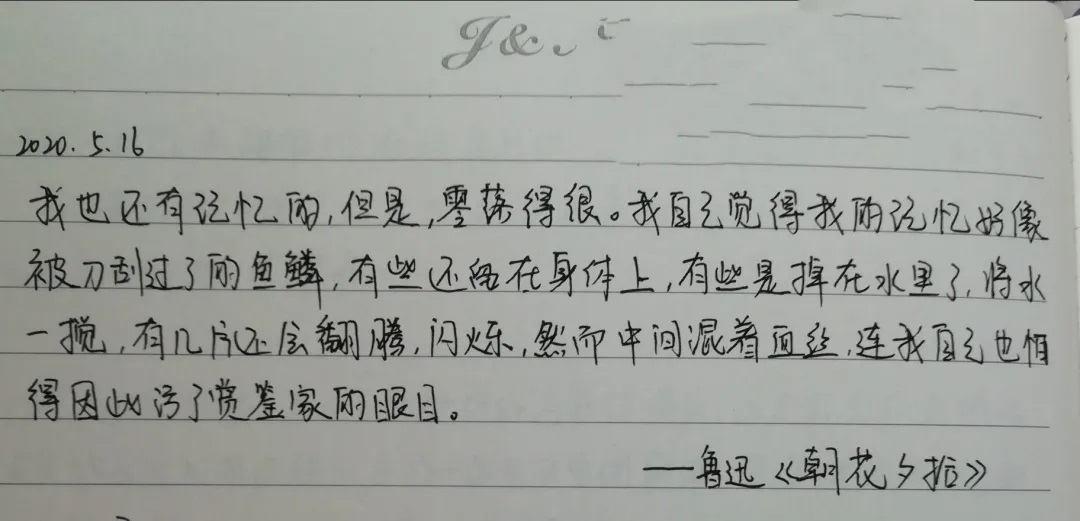 J&
2020.5.16
我也还有记忆的,但是,零落得很。我自己觉得我的记忆好像
被刀刮过了的鱼鳞,有些还留在身体上,有些是掉在水里了,将水
一搅,有几片还会翻腾,闪烁,然而中间混着血丝,连我自己也怕
得因此污了赏鉴家的眼目。
——鲁迅《朝花夕拾》